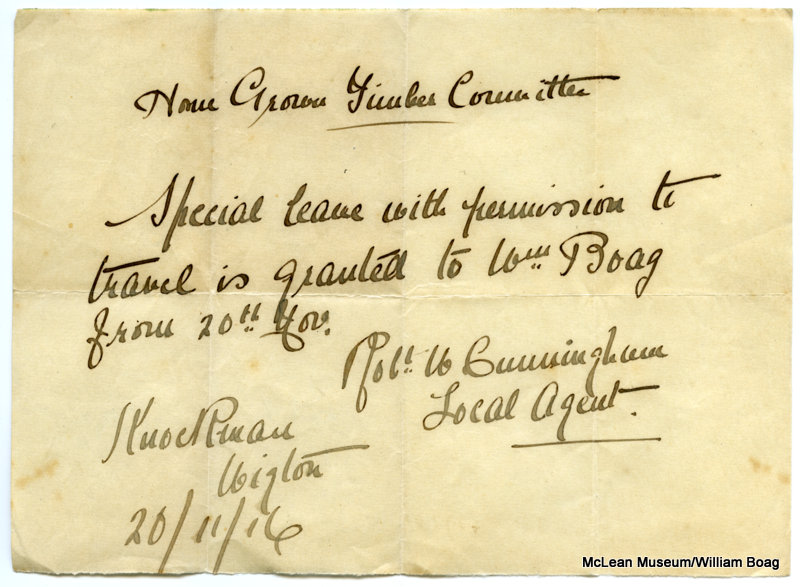 Home Grown Timber Committee
Special leave with permission to
travel is granted to Wm Boag
from 20th Nov.
Robt. W Cunningham
Local Agent.
Knockman
Wigton
20/11/16
McLean Museum/William Boag